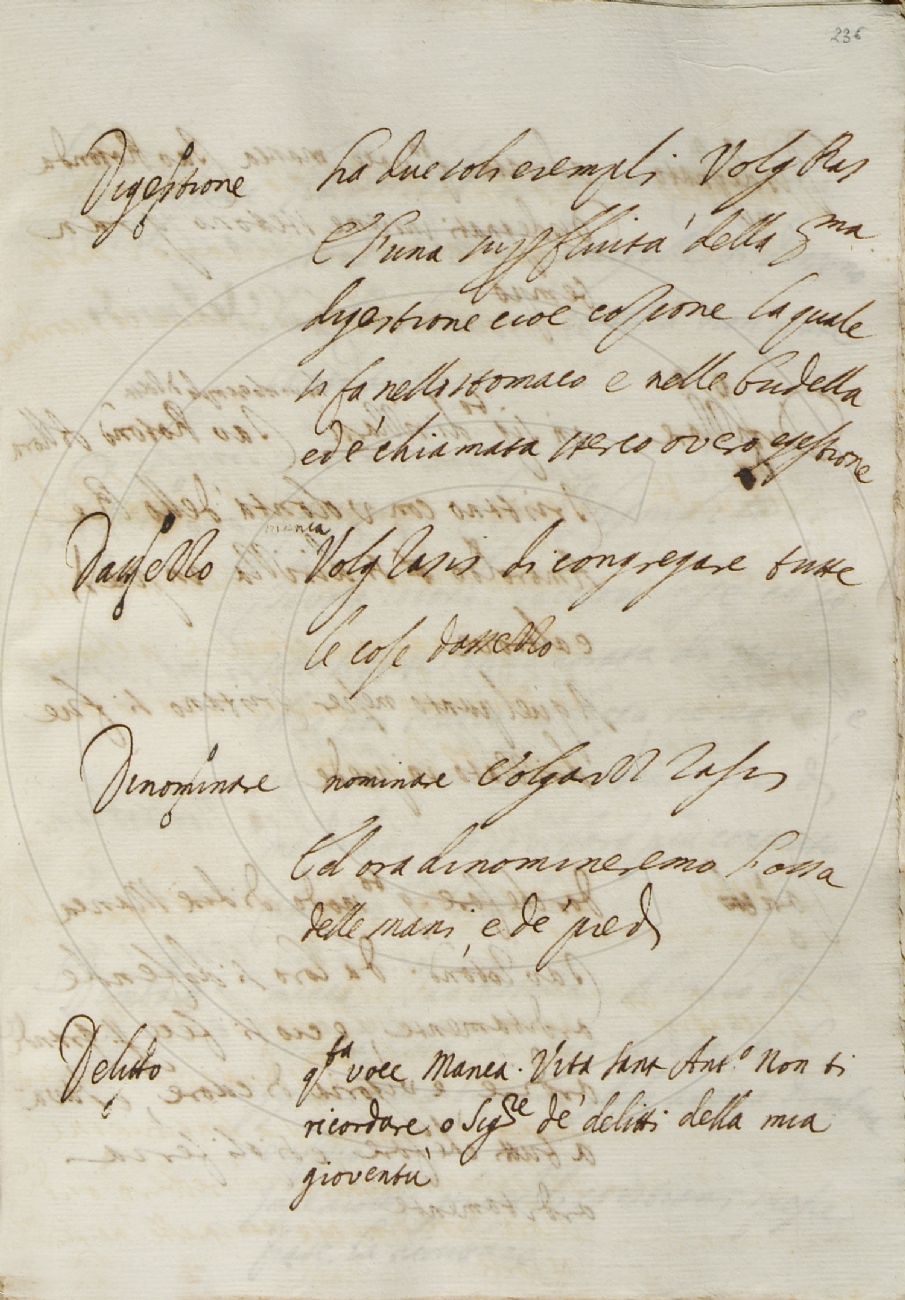 236
Digestione ha due soli esempli Volg Ras
E l'una superfluità della pma
digestione cioe cozione la quale
si fa nello stomaco e nelle budella
ed è chiamata sterco overo egestione
manca
Dassello Volg Rasis di congregare tutte
le cose dassello
Dinominare nominare Volgar Rasis
Ed ora dinomineremo l'ossa
delle mani, e de' piedi
Delitto qta voce Manca. Vita Sant Anto Non ti
ricordare o Sigre de' delitti della mia
gioventù